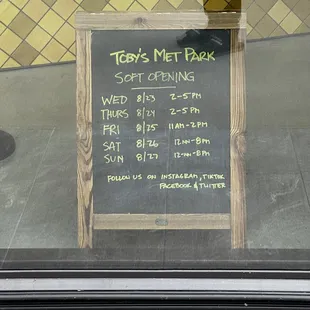 TOBY'S MET PARK
SOFT OPENING
WED 8/23 2-5PM
THURS 8/24 2-5PM
FRI 8/25 11AM-2PM
SAT 8/26 12NN-8PM
SUN 8/27 12NN-8PM
FOLLOW US ON INSTAGRAM, TIKTOK
FACEBOOK & TWITTER